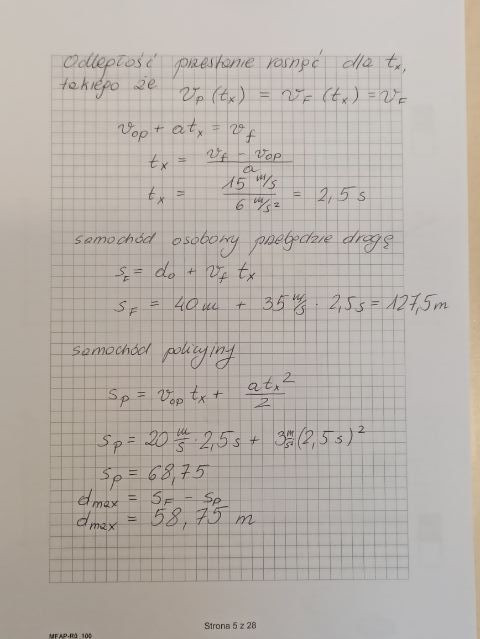 Odległość przestanie rosnąć dla tₓ,
takiego że
v_p (tₓ) = v_F (tₓ) = v_F
v_op + atₓ = v_f
tₓ = (v_f - v_op) / a
tₓ = (15 m/s) / (6 m/s²) = 2,5 s
samochód osobowy przebędzie drogę
s_F = d₀ + v_f tₓ
s_F = 40 m + 35 m/s · 2,5 s = 127,5 m
samochód policyjny
s_p = v_op tₓ + atₓ²/2
s_p = 20 m/s · 2,5 s + 3 m/s² (2,5 s)²
s_p = 68,75
d_max = s_F - s_p
d_max = 58,75 m
Strona 5 z 28
MFAP-R0_100